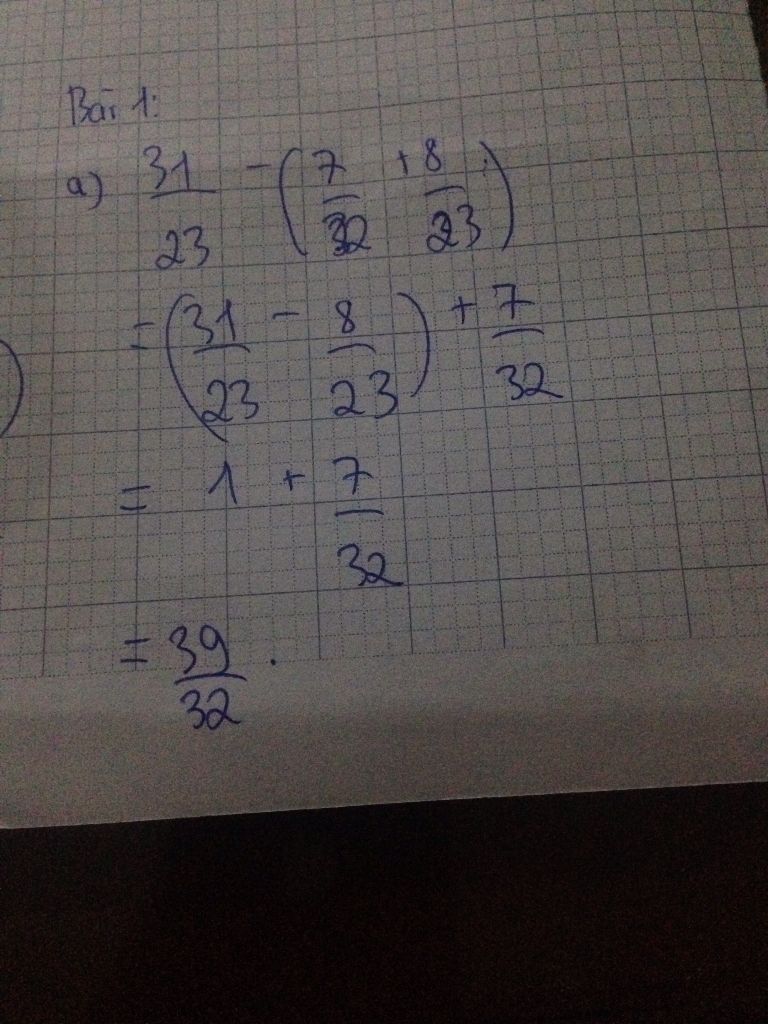 Bài 1:
a) 31/23 - (7/32 + 8/23)
= (31/23 - 8/23) + 7/32
= 1 + 7/32
= 39/32.